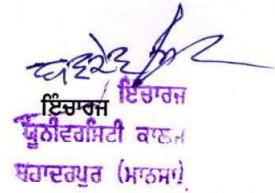 ਇੰਚਾਰਜ ਇੰਚਾਰਜ
ਯੂਨੀਵਰਸਿਟੀ ਕਾਲਜ
ਬਹਾਦਰਪੁਰ (ਮਾਨਸਾ)